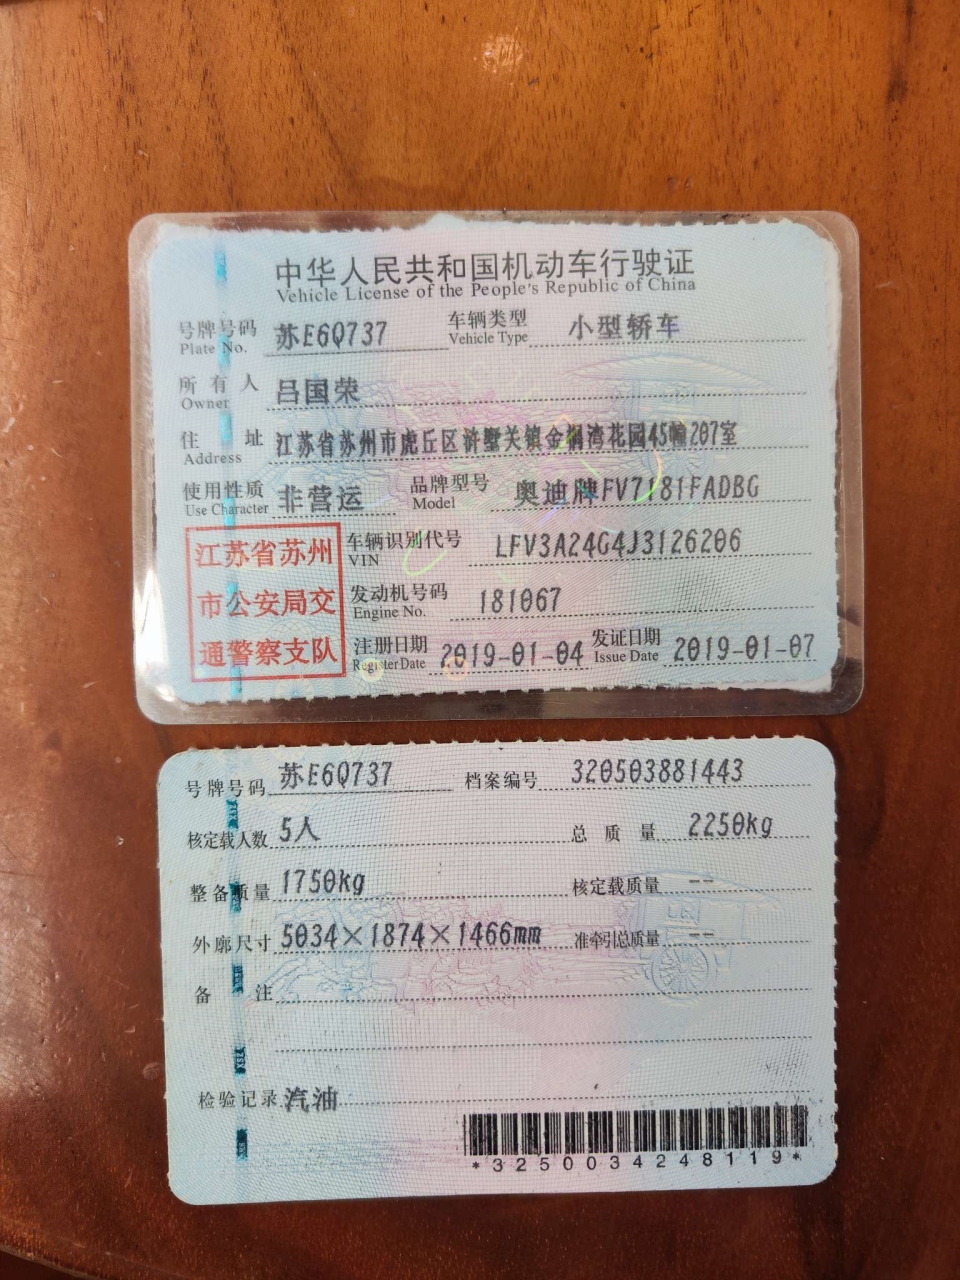 中华人民共和国机动车行驶证
Vehicle License of the People's Republic of China
号牌号码 苏E6Q737 车辆类型 小型轿车
Plate No. Vehicle Type
所有人 吕国荣
Owner
住址 江苏省苏州市虎丘区浒墅关镇金榈湾花园45幢207室
Address
使用性质 非营运 品牌型号 奥迪牌FV7181FADBG
Use Character Model
江苏省苏州
市公安局交
通警察支队
车辆识别代号 LFV3A24G4J3126206
VIN
发动机号码 181067
Engine No.
注册日期 2019-01-04 发证日期 2019-01-07
Register Date Issue Date
号牌号码 苏E6Q737 档案编号 320503881443
核定载人数 5人 总质量 2250kg
整备质量 1750kg 核定载质量 --
外廓尺寸 5034×1874×1466mm 准牵引总质量 --
备注
检验记录 汽油
*3250034248119*